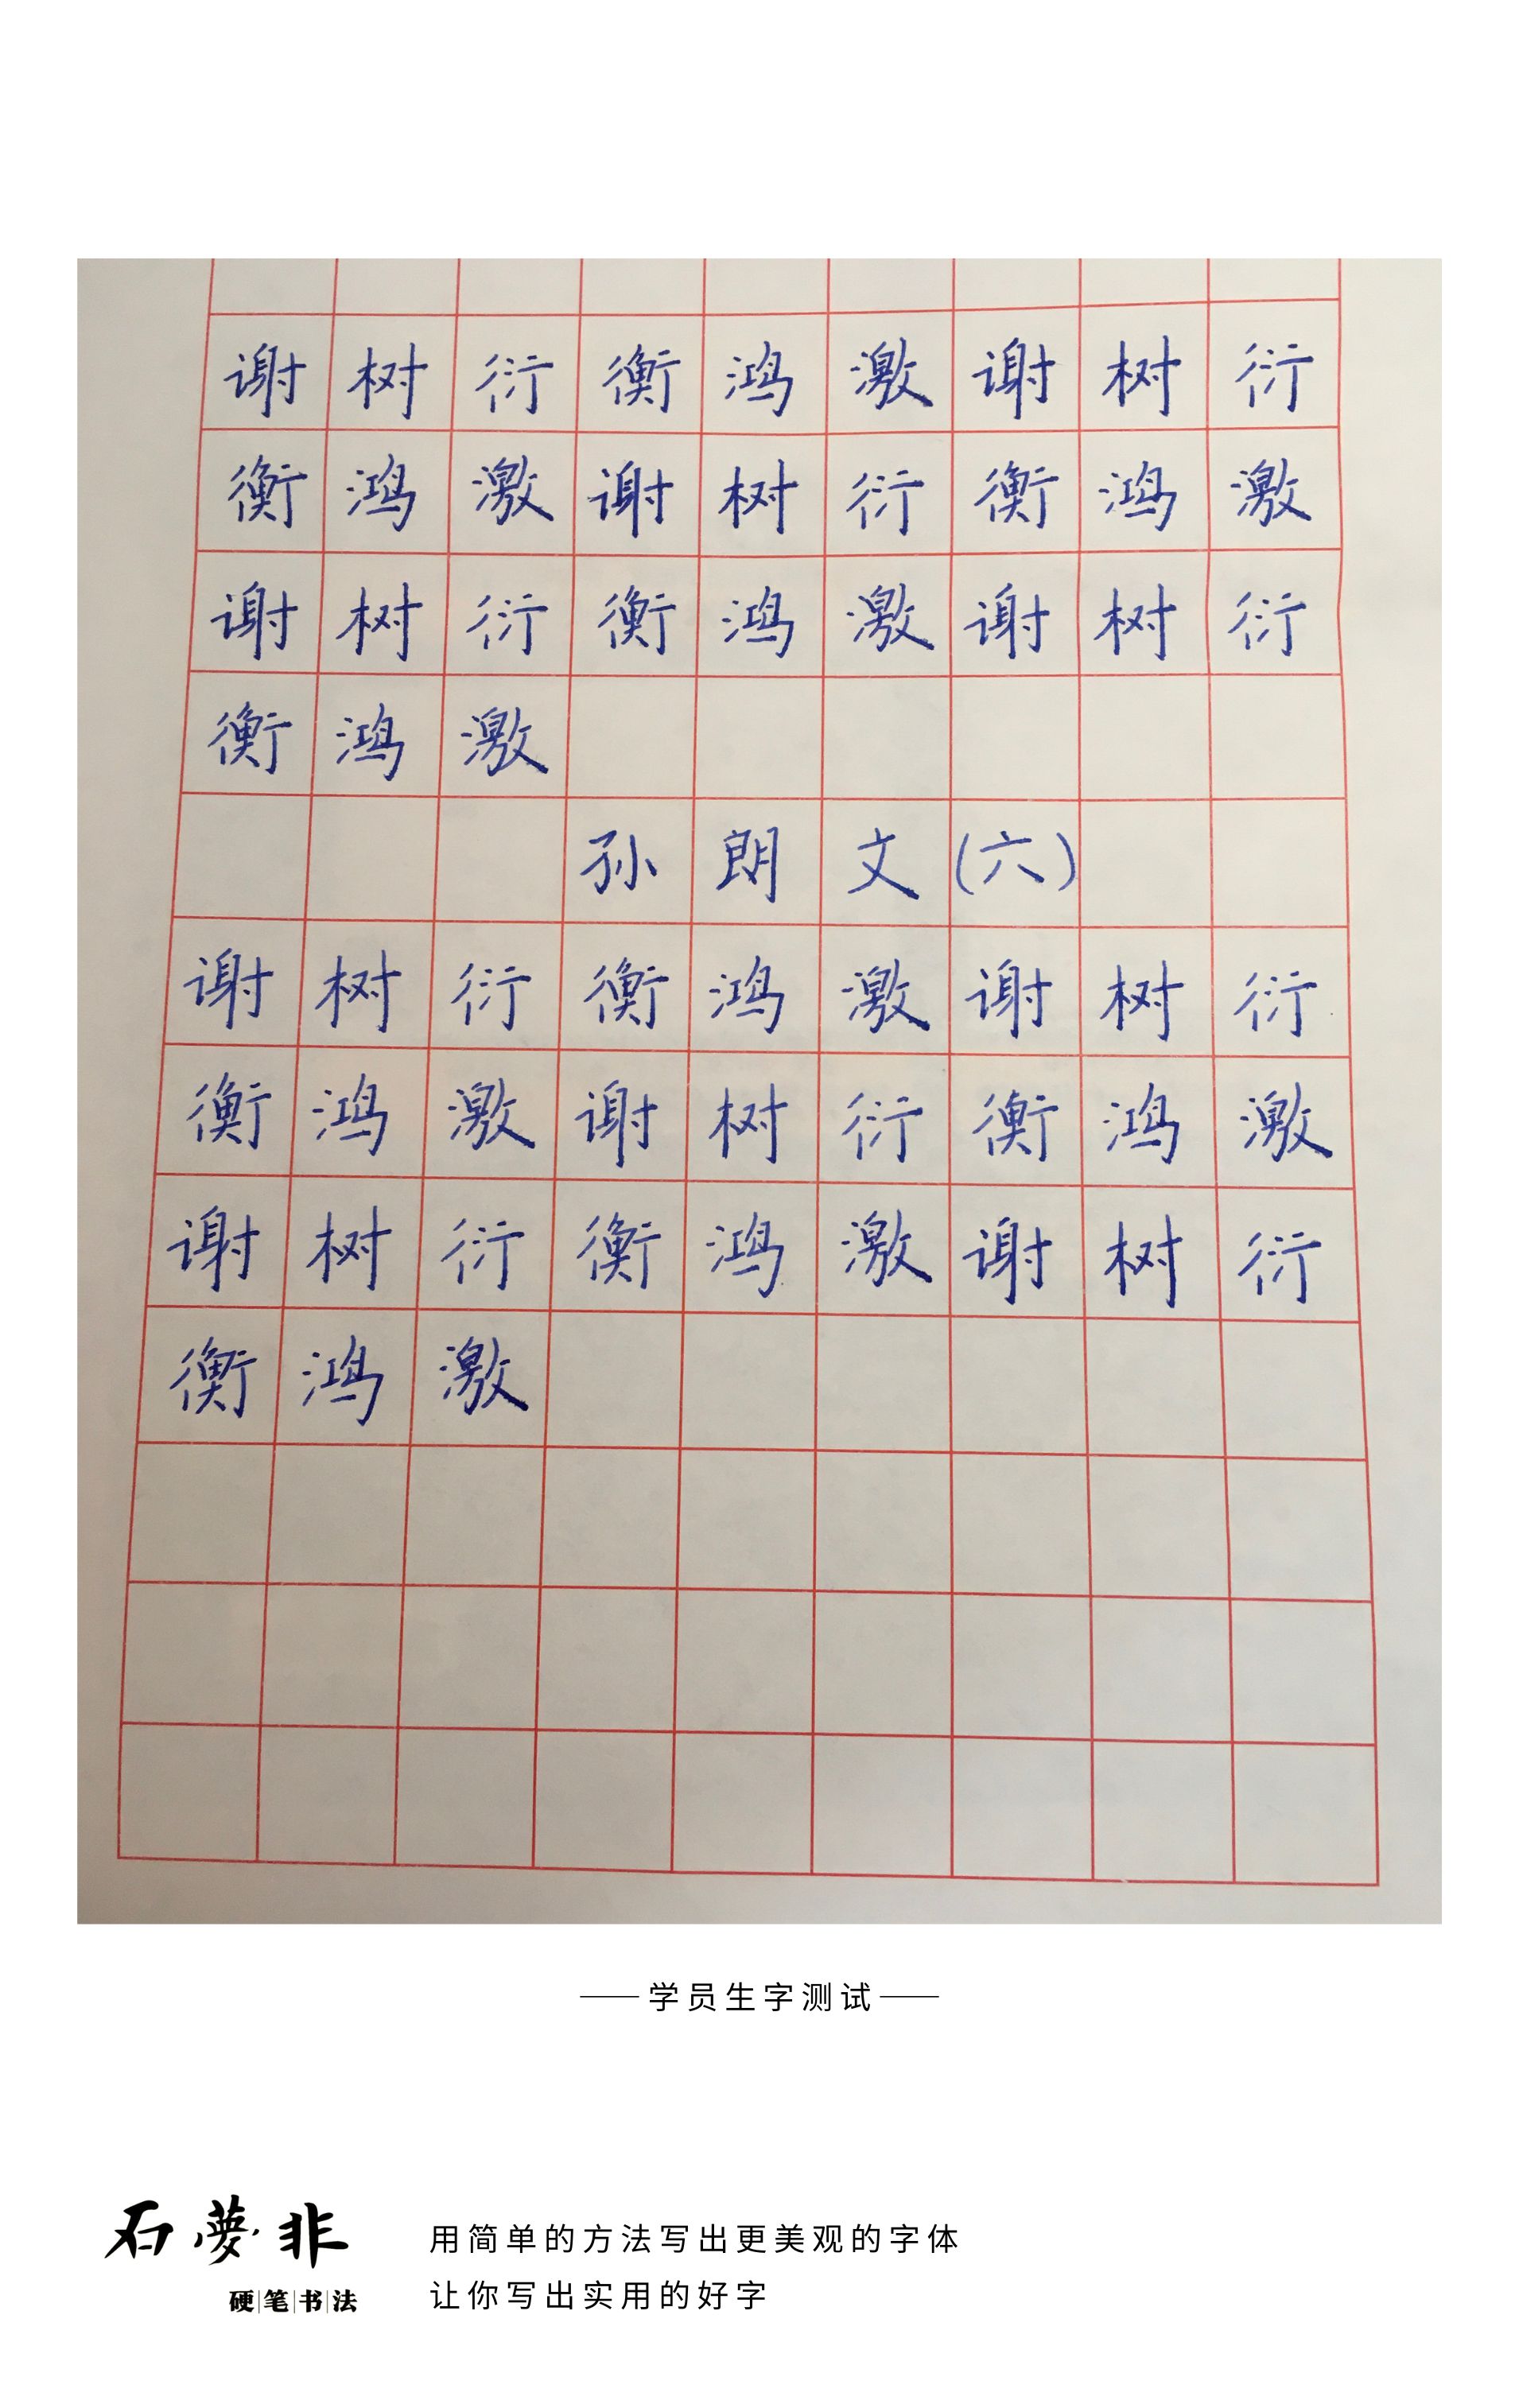 谢树衍衡鸿激谢树衍
衡鸿激谢树衍衡鸿激
谢树衍衡鸿激谢树衍
衡鸿激
孙朗文(六)
谢树衍衡鸿激谢树衍
衡鸿激谢树衍衡鸿激
谢树衍衡鸿激谢树衍
衡鸿激
学员生字测试
石夢非
硬笔书法
用简单的方法写出更美观的字体
让你写出实用的好字